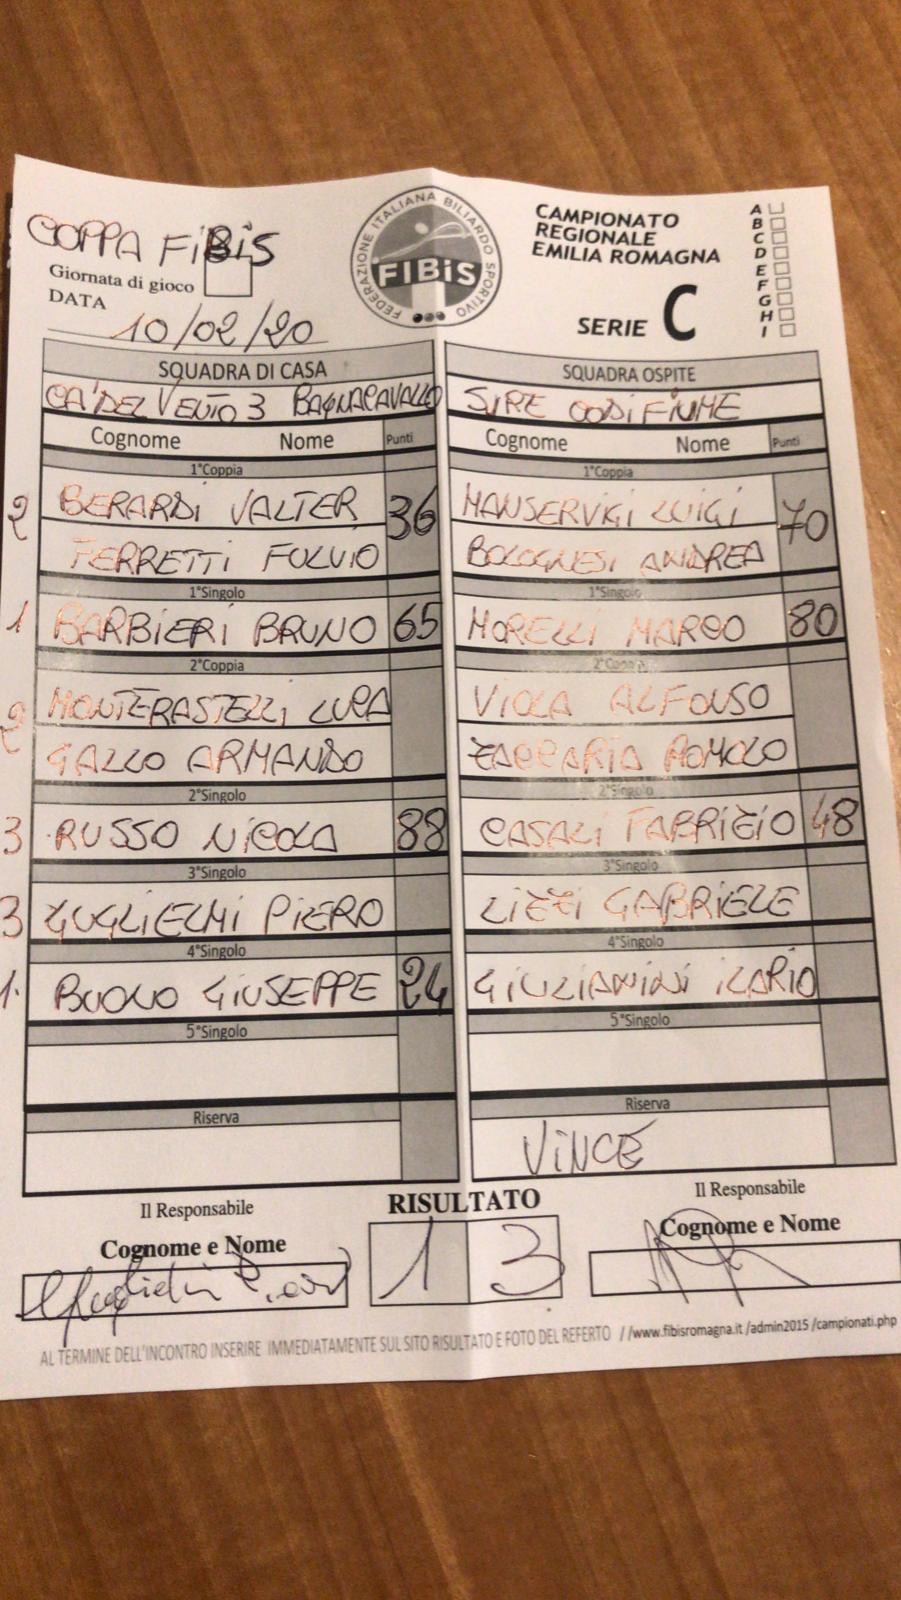 COPPA FIBIS
Giornata di gioco
DATA 10/02/20
FEDERAZIONE ITALIANA BILIARDO SPORTIVO
FIBiS
CAMPIONATO
REGIONALE
EMILIA ROMAGNA
SERIE C
A
B
C
D
E
F
G
H
I
SQUADRA DI CASA SQUADRA OSPITE
CA' DEL VENTO 3 BAGNACAVALLO SIRE CODIFIUME
Cognome Nome Punti Cognome Nome Punti
1°Coppia 1°Coppia
2 BERARDI VALTER 36 MANSERVIGI LUIGI 70
FERRETTI FULVIO BOLOGNESI ANDREA
1°Singolo 1°Singolo
1 BARBIERI BRUNO 65 MORELLI MARCO 80
2°Coppia 2°Coppia
2 MONTERASTELLI LUCA VIOLA ALFONSO
GALLO ARMANDO ZACCARIA ROMOLO
2°Singolo 2°Singolo
3 RUSSO NICOLA 88 CASALI FABRIZIO 48
3°Singolo 3°Singolo
3 GUGLIELMI PIERO LIZZI GABRIELE
4°Singolo 4°Singolo
1. BUONO GIUSEPPE 24 GIULIANINI ILARIO
5°Singolo 5°Singolo
Riserva Riserva
VINCE
Il Responsabile RISULTATO Il Responsabile
Cognome e Nome 1 3 Cognome e Nome
AL TERMINE DELL'INCONTRO INSERIRE IMMEDIATAMENTE SUL SITO RISULTATO E FOTO DEL REFERTO //www.fibisromagna.it /admin2015 /campionati.php